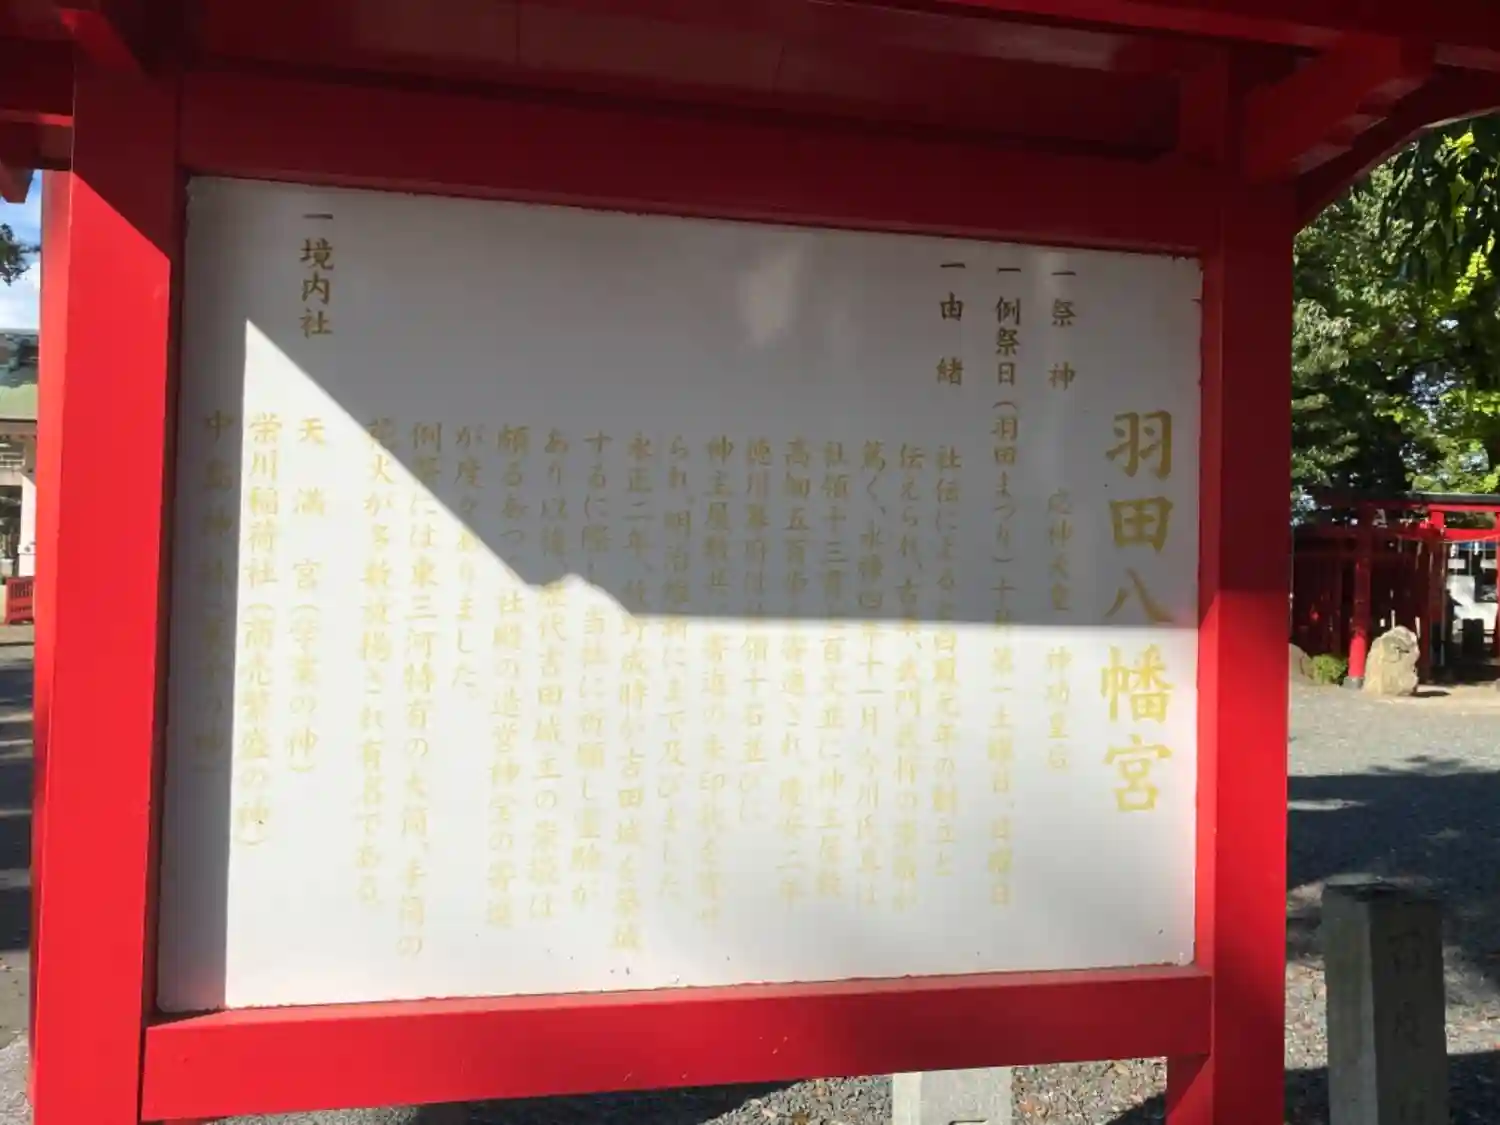 羽田八幡宮
一 祭 神 応神天皇 神功皇后
一 例祭日(羽田まつり)十月第一土曜日、日曜日
一 由 緒 社伝によると白鳳元年の創立と
伝えられ、古来、武門武将の崇敬が
篤く、永禄四年十一月今川氏真は
社領十三貫 百文並に神主屋敷
高畑五百 寄進され、慶安二年
徳川幕府は社領十石並びに
神主屋敷共 寄進の朱印状を寄せ
られ、明治維新にまで及びました。
永正二年、牧野成時が吉田城を築城
するに際し、当社に祈願し霊験が
あり以後、歴代吉田城主の崇敬は
頗るあつく、社殿の造営神宝の寄進
が度々ありました。
例祭には東三河特有の大筒、手筒の
花火が多数放揚され有名である。
一 境内社 天 満 宮(学業の神)
栄川稲荷社(商売繁盛の神)
中島神社